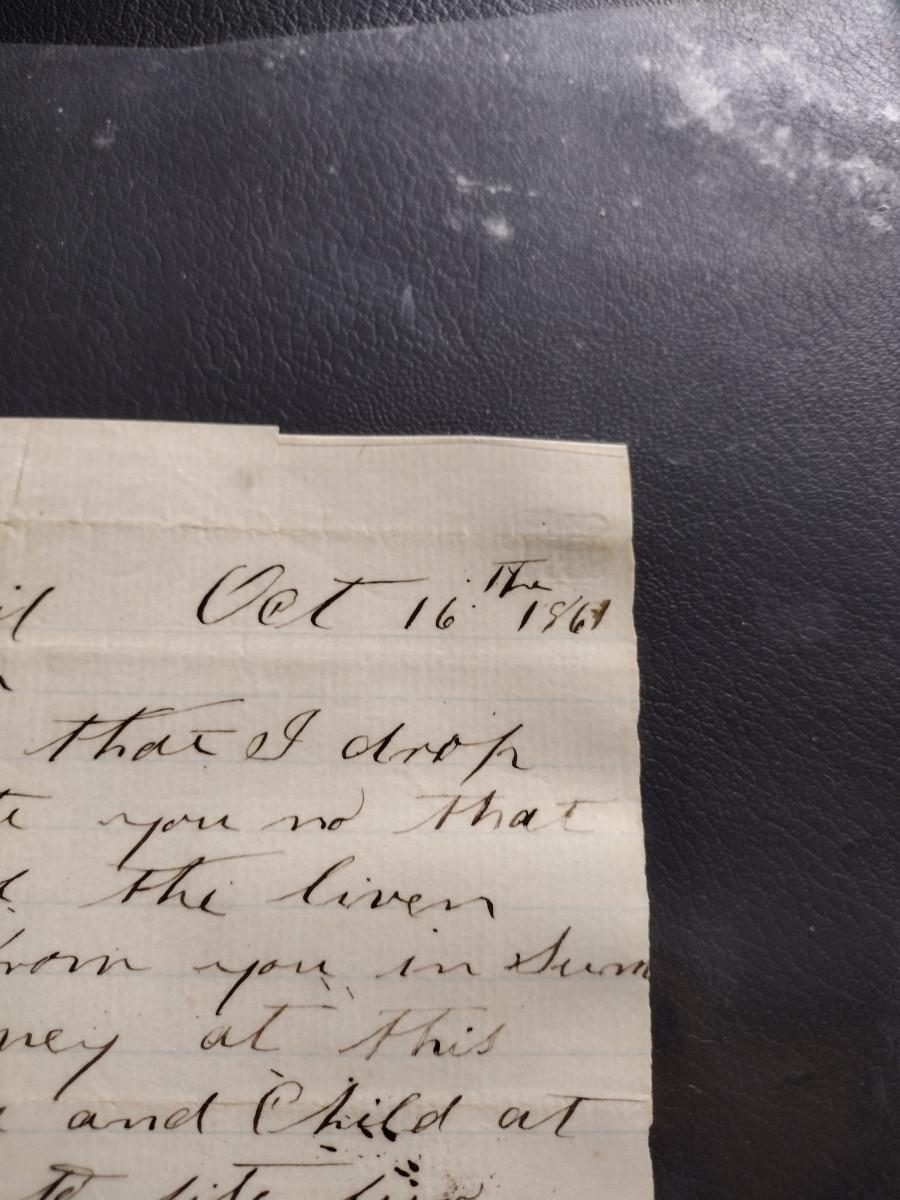 Oct 16 The 1861
that I drop
you no that
the liven
from you in Sum
at this
and Child at